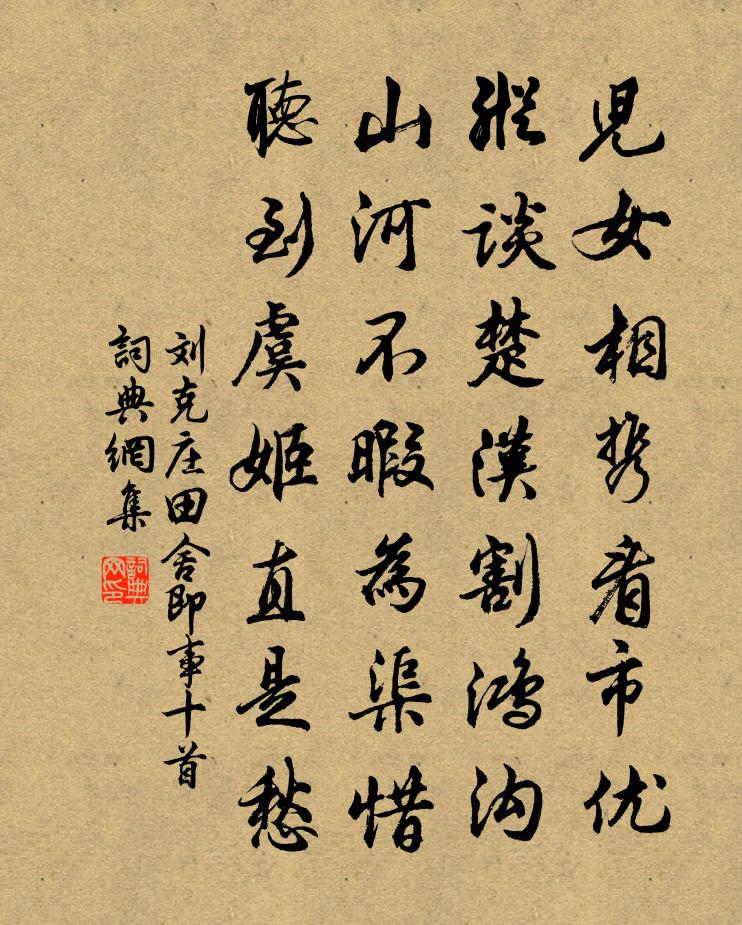 兒女相携看市优
縱談楚漢割鴻沟
山河不暇為渠惜
聽到虞姬直是愁
刘克庄田舍即事十首
詞典網集
詞典网印